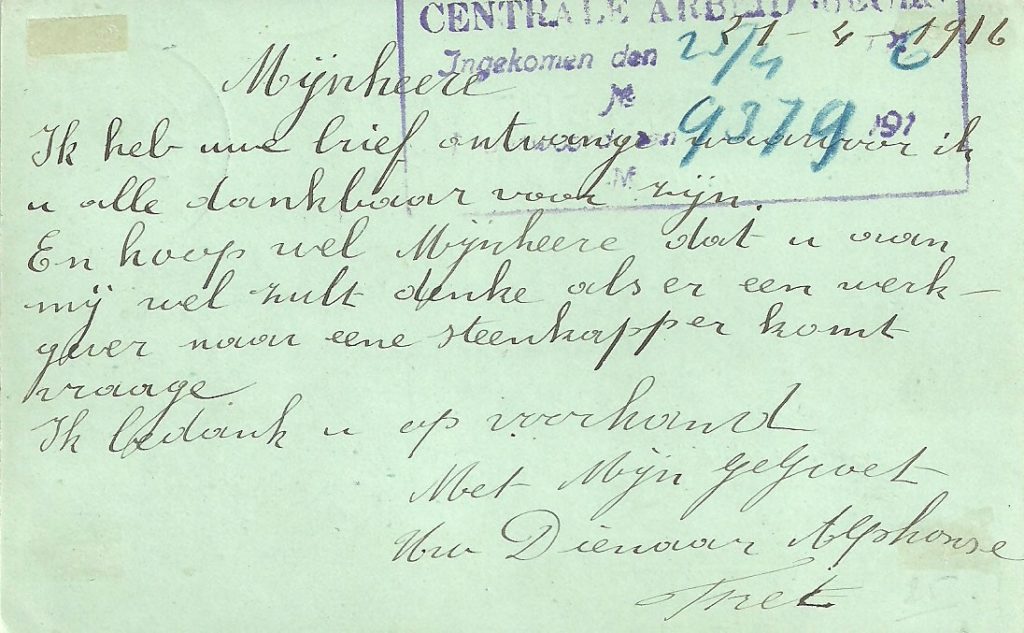 CENTRALE ARBEID
21-4-1916
Ingekomen den 25/4 6
Mijnheere
№ 9379 191
Ik heb uwe brief ontvange waarvoor ik
№
u alle dankbaar voor zijn.
En hoop wel Mijnheere dat u aan
mij wel zult denke als er een werk-
gever naar eene steenkapper komt
vraage
Ik bedank u op voorhand
Met Mijn gegroet
Uw Dienaar Alphonse